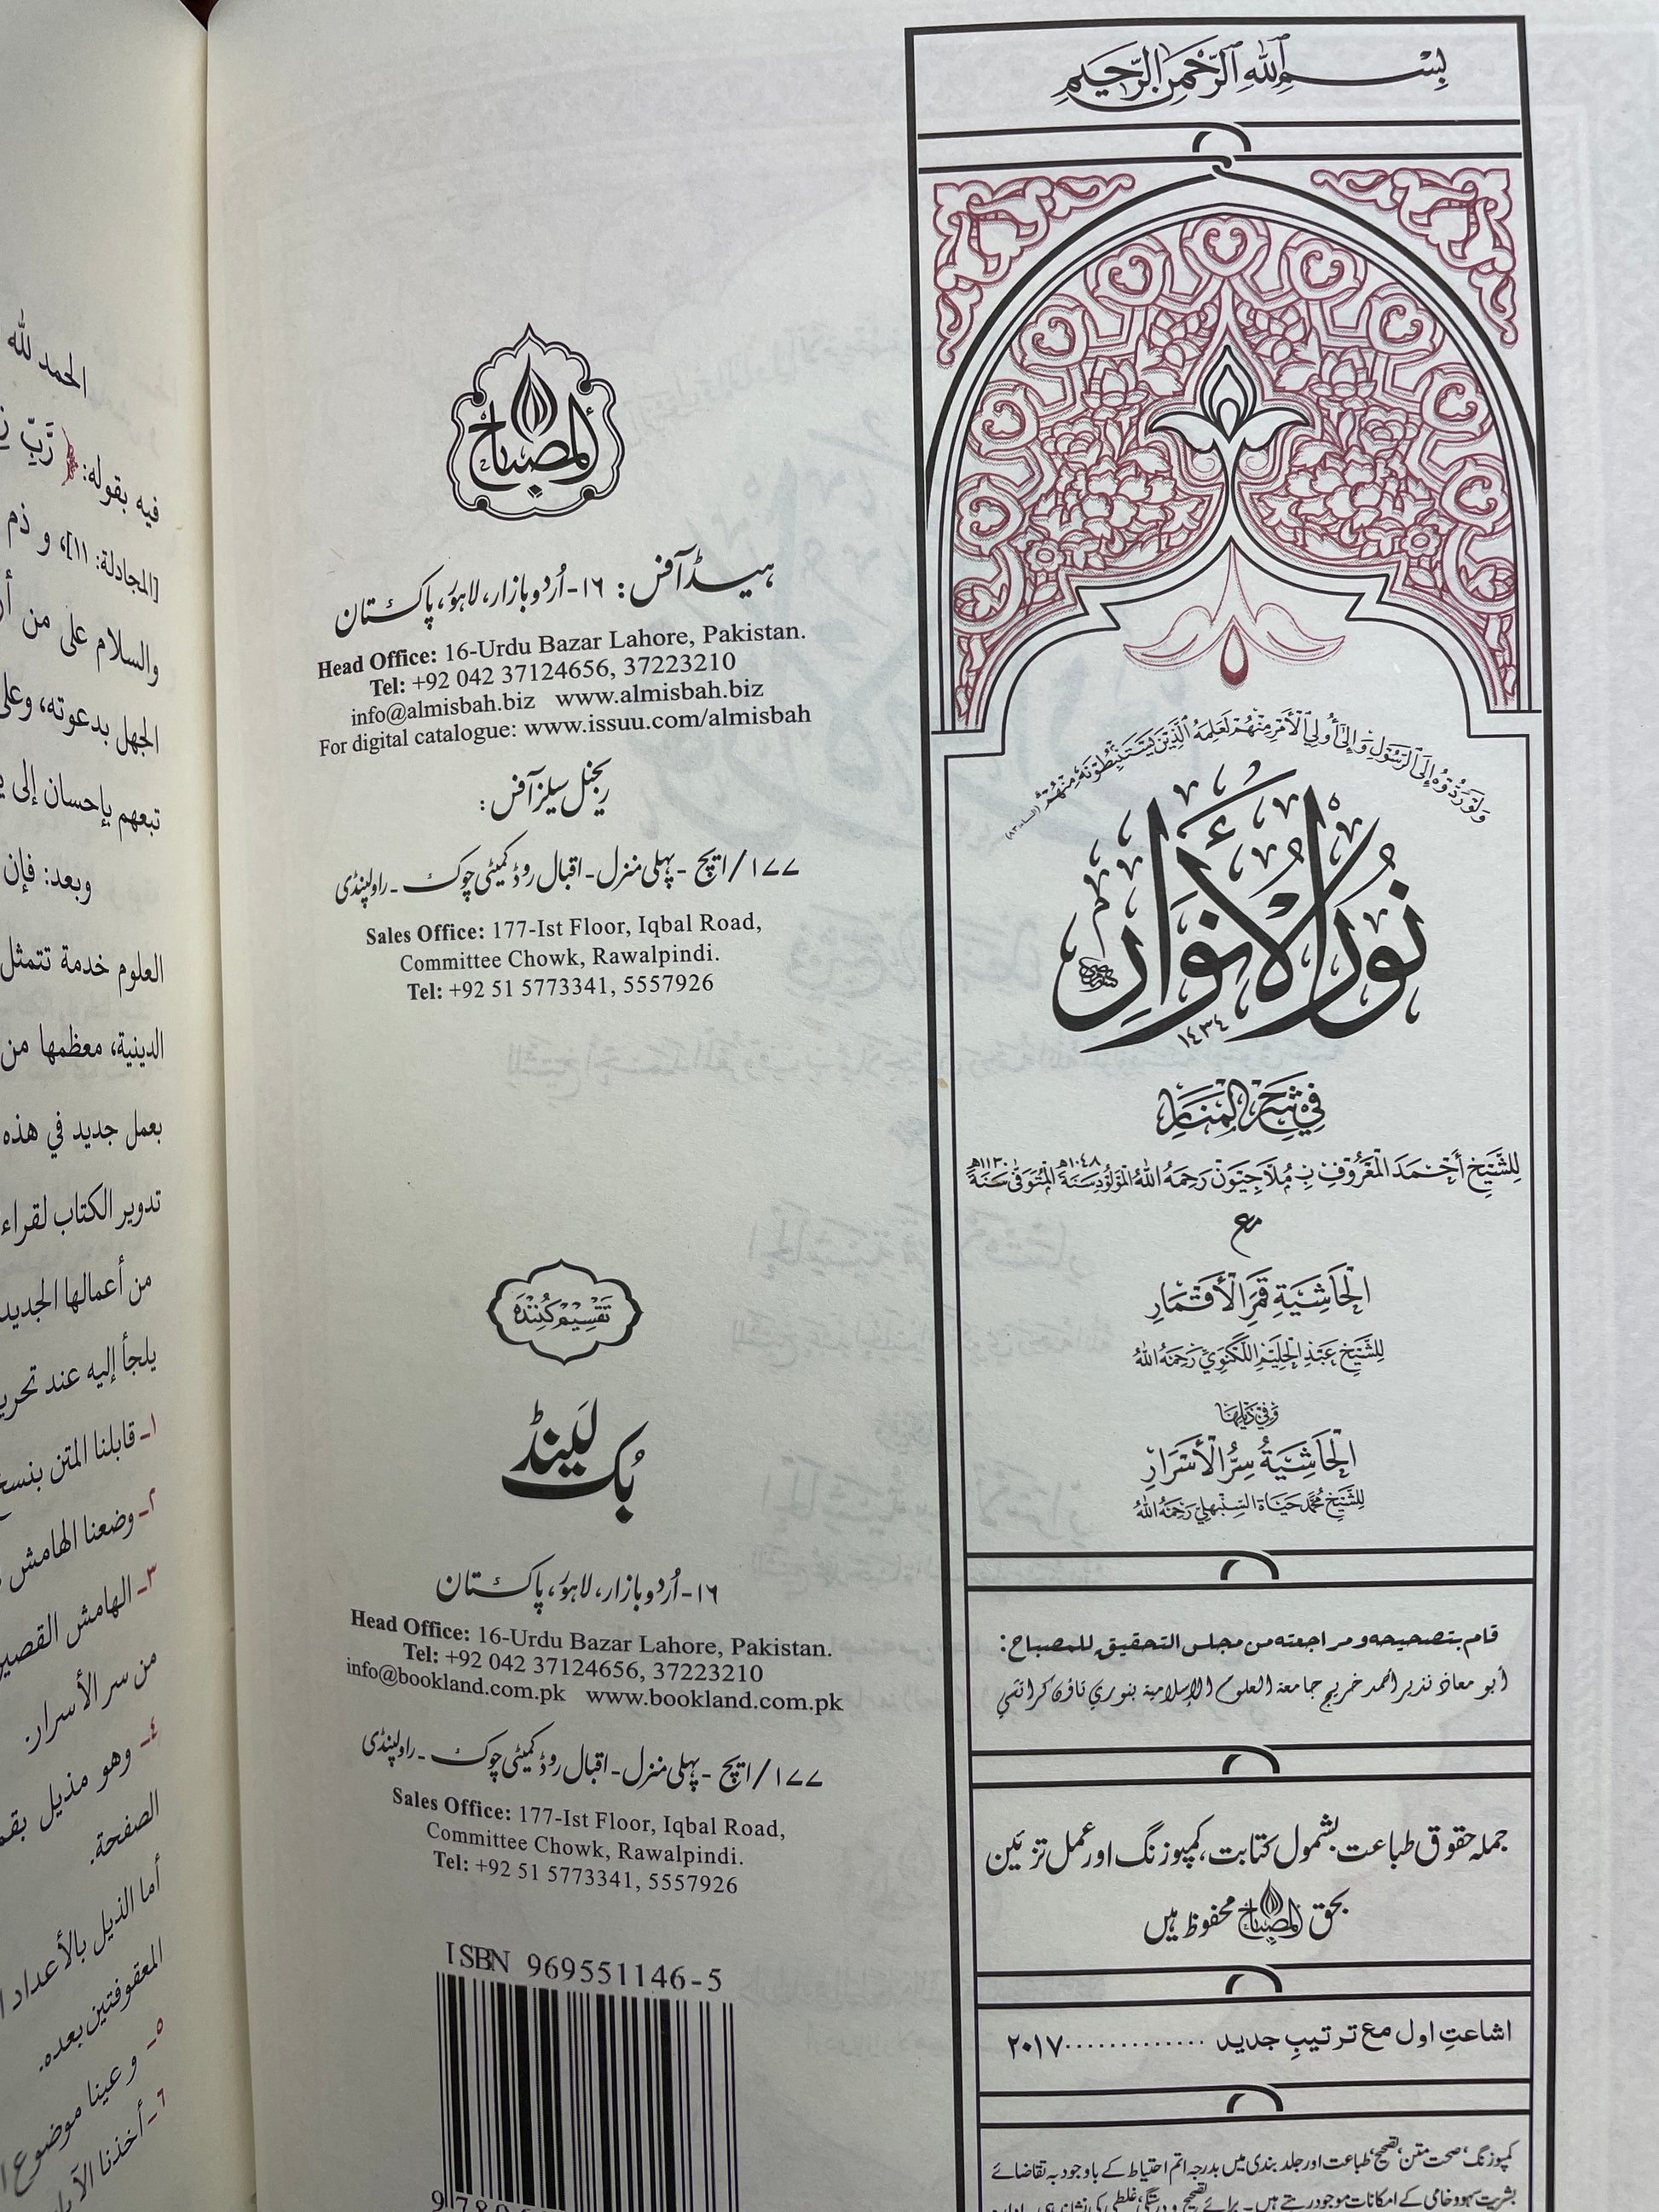 بِسْمِ اللهِ الرَّحْمٰنِ الرَّحِيمِ
وَلَوْ رَدُّوهُ إِلَى الرَّسُولِ وَإِلَى أُولِي الْأَمْرِ مِنْهُمْ لَعَلِمَهُ الَّذِينَ يَسْتَنْبِطُونَهُ مِنْهُمْ (النساء:٨٣)
نُورُ الْأَنْوَارِ
١٤٣٤
فِي شَرْحِ الْمَنَارِ
لِلشَّيْخِ أَحْمَدَ الْمَعْرُوفِ بِـ مُلَّا جِيوَنْ رَحِمَهُ اللهُ الْمَوْلُودِ سَنَةَ ١٠٤٨ھ الْمُتَوَفّٰى سَنَةَ ١١٣٠ھ
مع
الْحَاشِيَةِ قَمَرِ الْأَقْمَارِ
لِلشَّيْخِ عَبْدِ الْحَلِيْمِ اللَّكْنَوِيِّ رَحِمَهُ اللهُ
وَفِي ذَيْلِهَا
الْحَاشِيَةُ سِرُّ الْأَسْرَارِ
لِلشَّيْخِ مُحَمَّد حَيَاة السَّنْبَهلِيِّ رَحِمَهُ اللهُ
قام بتصحيحه ومراجعته من مجلس التحقيق للمصباح:
أبو معاذ نذير أحمد خريج جامعة العلوم الإسلامية بنوري تاؤن كراتشي
جملہ حقوق طباعت بشمول کتابت، کمپوزنگ اور عمل تزئین
بحق المصباح محفوظ ہیں
اشاعتِ اول مع ترتیبِ جدید .............۲۰۱۷
کمپوزنگ، صحت متن، تصحیح، طباعت اور جلد بندی میں بدرجہ اتم احتیاط کے باوجود بہ تقاضائے
بشریت سہو و خامی کے امکانات موجود رہتے ہیں۔ برائے تصحیح و درستگی غلطی کی نشاندہی
المصباح
ہیڈ آفس: ۱۶-اُردو بازار، لاہور، پاکستان
Head Office: 16-Urdu Bazar Lahore, Pakistan.
Tel: +92 042 37124656, 37223210
info@almisbah.biz www.almisbah.biz
For digital catalogue: www.issuu.com/almisbah
ریجنل سیلز آفس:
۱۷۷/ایچ - پہلی منزل - اقبال روڈ کمیٹی چوک - راولپنڈی
Sales Office: 177-Ist Floor, Iqbal Road,
Committee Chowk, Rawalpindi.
Tel: +92 51 5773341, 5557926
تَقْسِيم كُنِنْدَه
بُک لَینڈ
۱۶-اُردو بازار، لاہور، پاکستان
Head Office: 16-Urdu Bazar Lahore, Pakistan.
Tel: +92 042 37124656, 37223210
info@bookland.com.pk www.bookland.com.pk
۱۷۷/ایچ - پہلی منزل - اقبال روڈ کمیٹی چوک - راولپنڈی
Sales Office: 177-Ist Floor, Iqbal Road,
Committee Chowk, Rawalpindi.
Tel: +92 51 5773341, 5557926
ISBN 969551146-5
الحمد لله
فيه بقوله: ﴿رَّبِّ
[المجادلة: ١١]، و ذم
والسلام على من
الجهل بدعوته، وعلى
تبعهم بإحسان إلى
وبعد: فإن
العلوم خدمة تتمثل
الدينية، معظمها من
بعمل جديد في هذه
تدوير الكتاب لقراءة
من أعمالها الجديد
يلجأ إليه عند تحرير
١- قابلنا المتن بنسخ
٢- وضعنا الهامش
٣- الهامش القصير
من سر الأسرار.
٤- وهو مذيل بقمر
الصفحة.
أما الذيل بالأعداد
المعقوفتين بعده.
٥- وعينا موضوع
٦- أخذنا